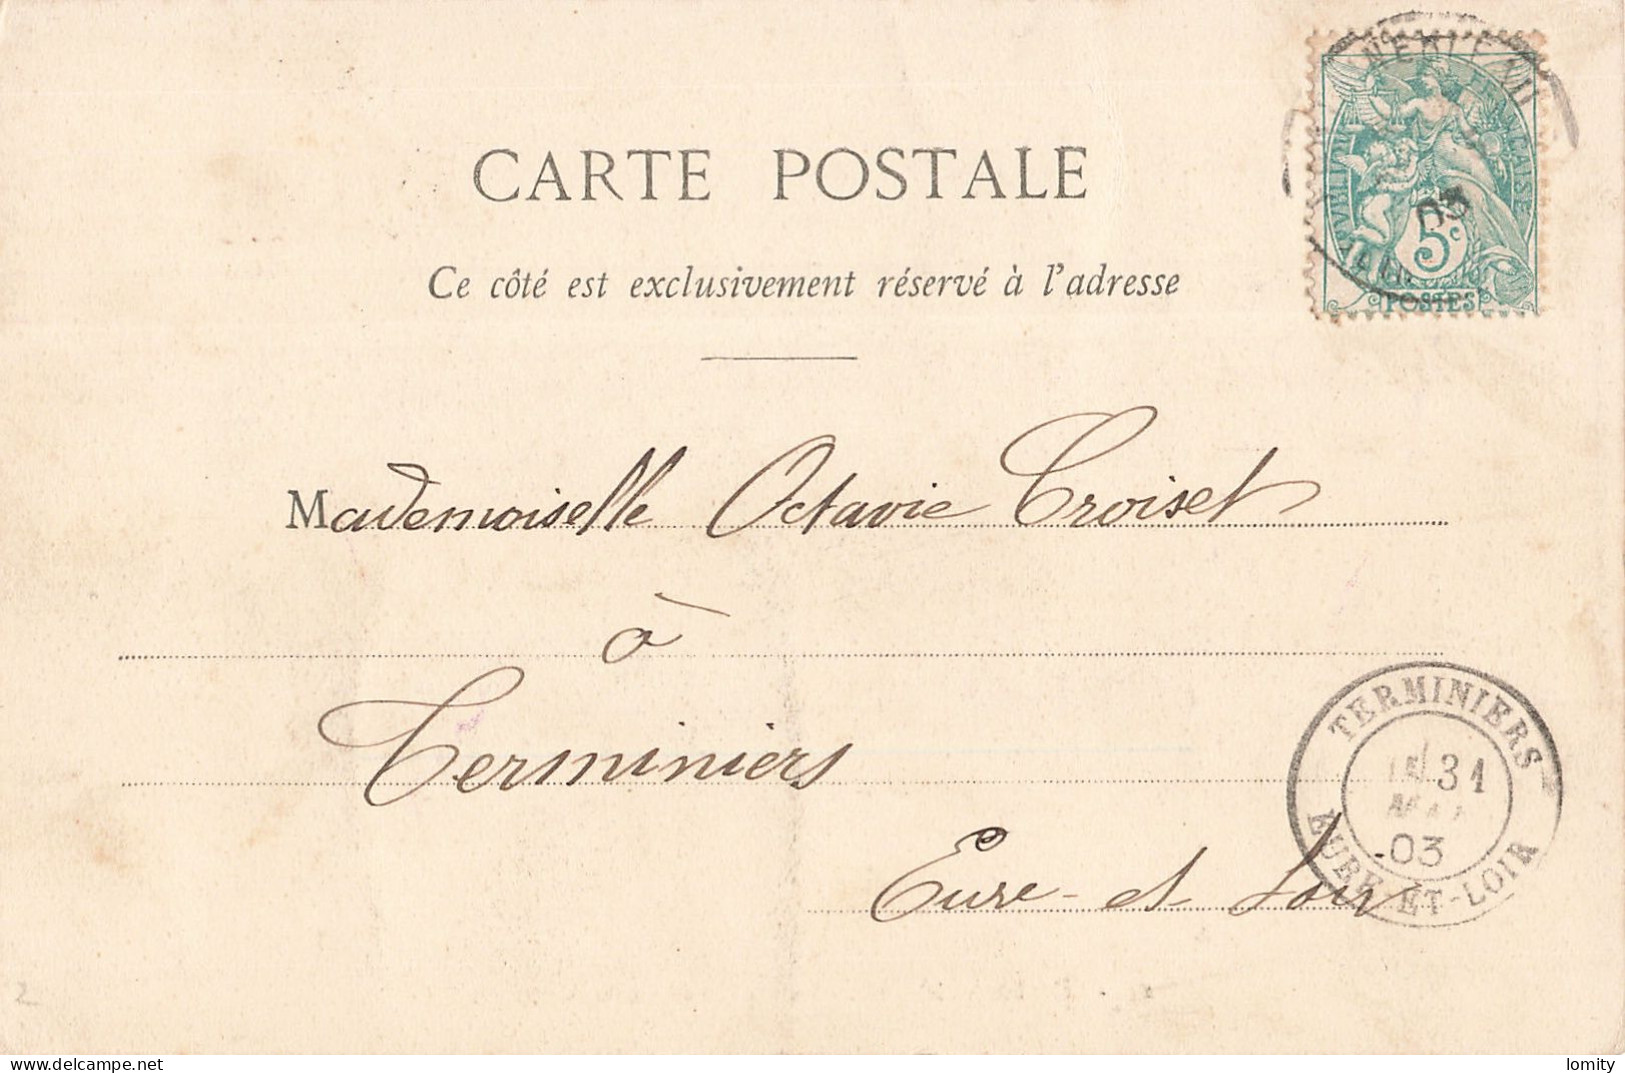 CARTE POSTALE
Ce côté est exclusivement réservé à l'adresse
5c
03
POSTES
Mademoiselle Octavie Croiset
à
Terminiers
Eure-et-Loir
TERMINIERS
31
MAI
03
EURE-ET-LOIR
2
lomity